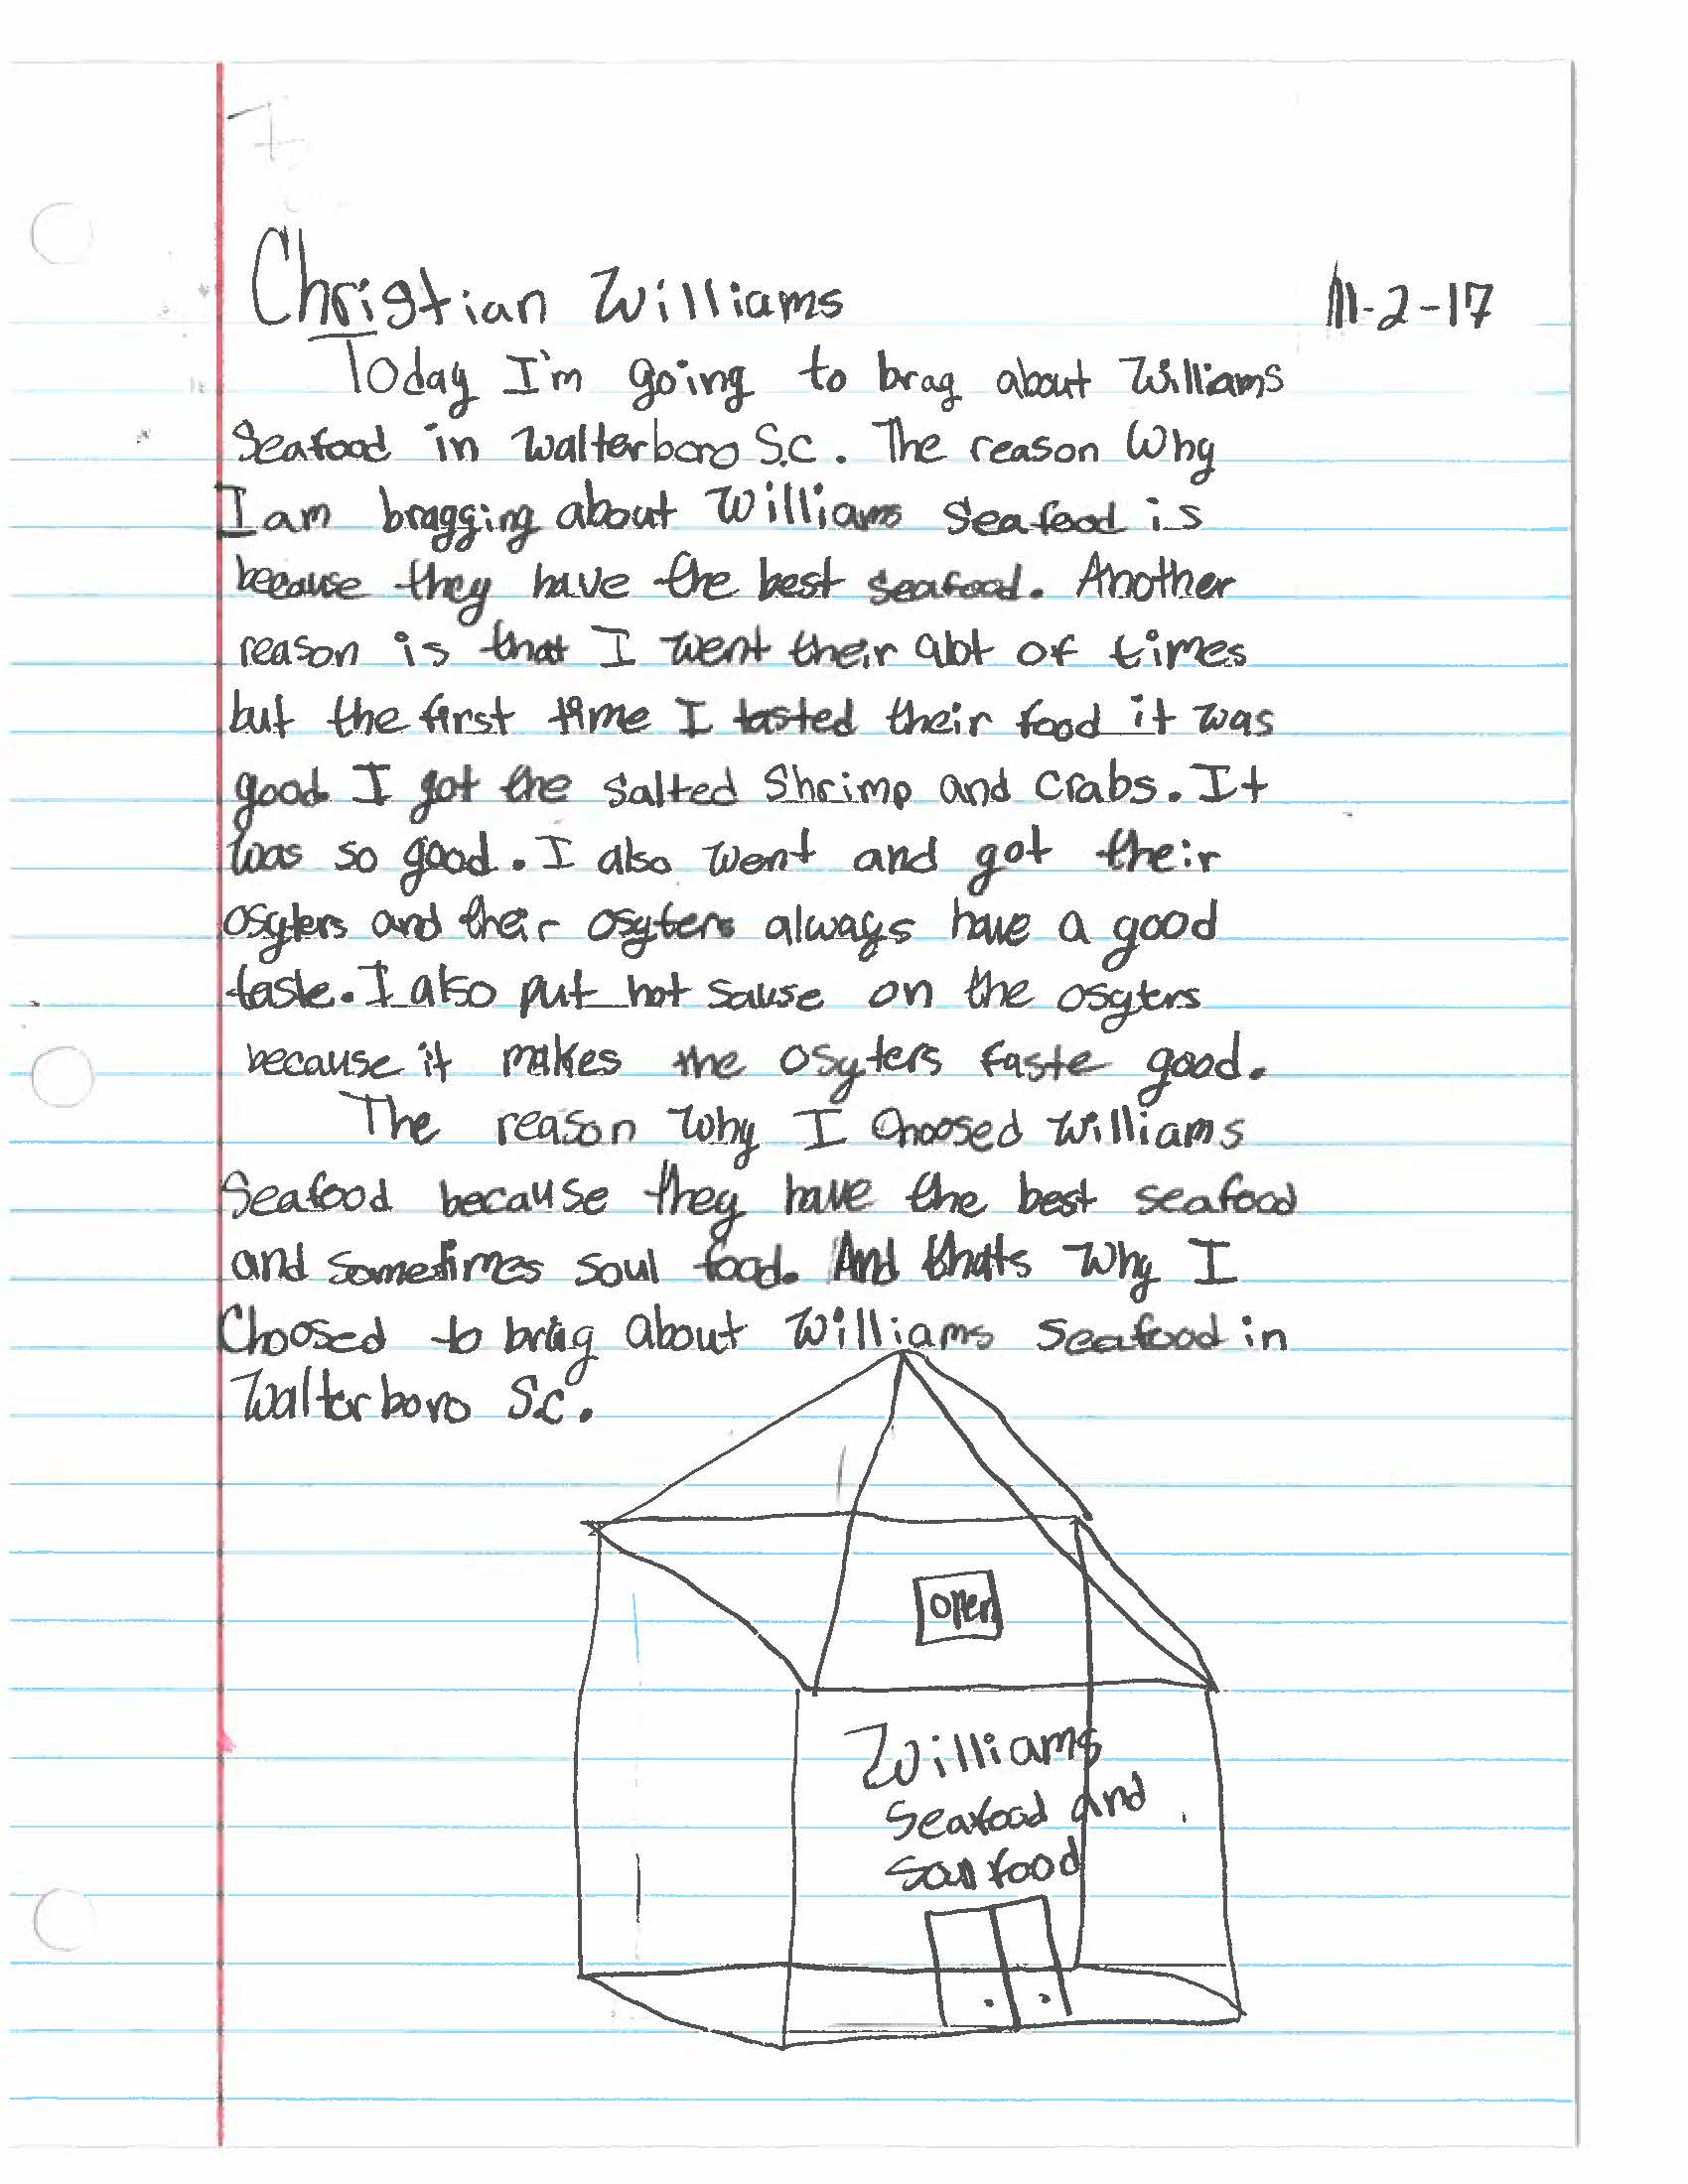 Christian Williams 11-2-17
Today I'm going to brag about Williams
Seafood in Walterboro S.C. The reason Why
I am bragging about Williams Seafood is
because they have the best seafood. Another
reason is that I went their alot of times
but the first time I tasted their food it was
good. I got the salted Shrimp and crabs. It
was so good. I also went and got their
osyters and their osyters always have a good
taste. I also put hot sause on the osyters
because it makes the osyters taste good.
The reason why I choosed Williams
Seafood because they have the best seafood
and sometimes soul food. And thats why I
Choosed to brag about Williams Seafood in
Walterboro S.C.
open
Williams
Seafood and
Soul food